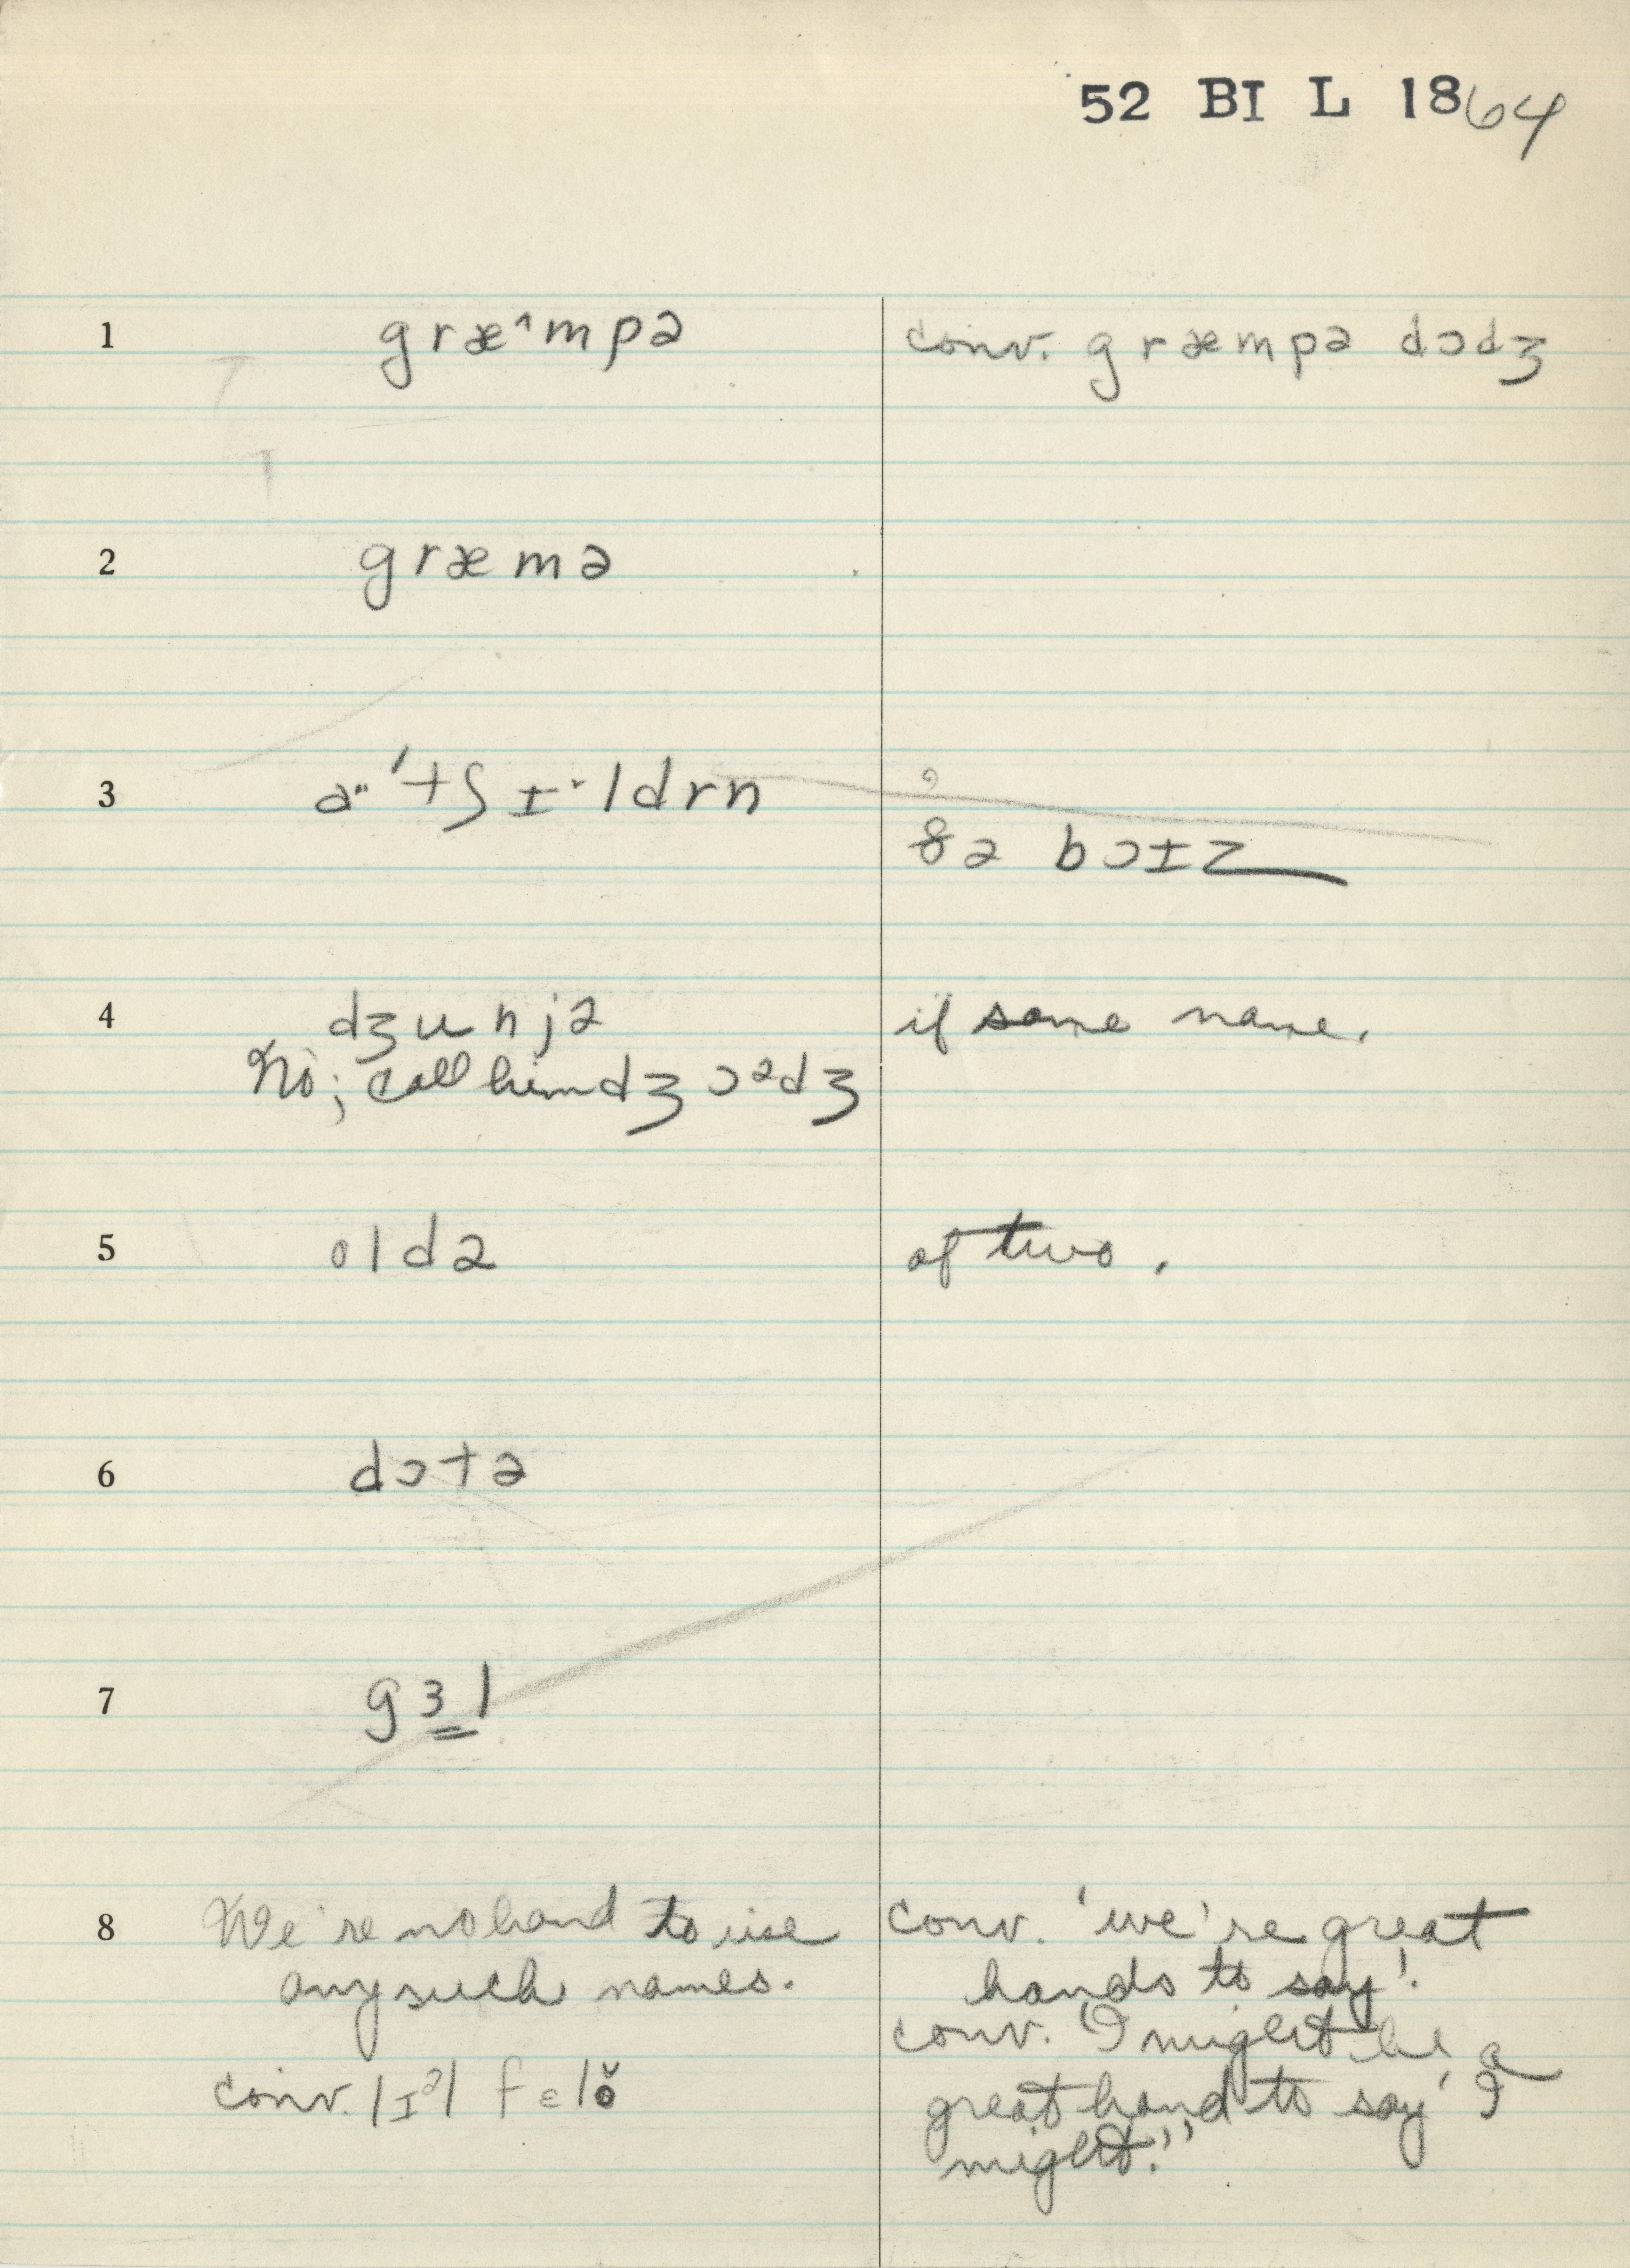 52 BI L 1864
1 græ^mpə conv. græmpə dɔdʒ
2 græmə
3 a"'tʃɪ˞ldrn
ðə bɔɪz
4 dʒunjə if same name.
No; call him dʒɔᵊdʒ
5 oldə of two.
6 dɔtə
7 gɜl
8 We're no hand to use conv. 'we're great
any such names. hands to say'.
conv. "I might be a
conv. lɪᵊl felo̬ great hand to say 'I
might.'"